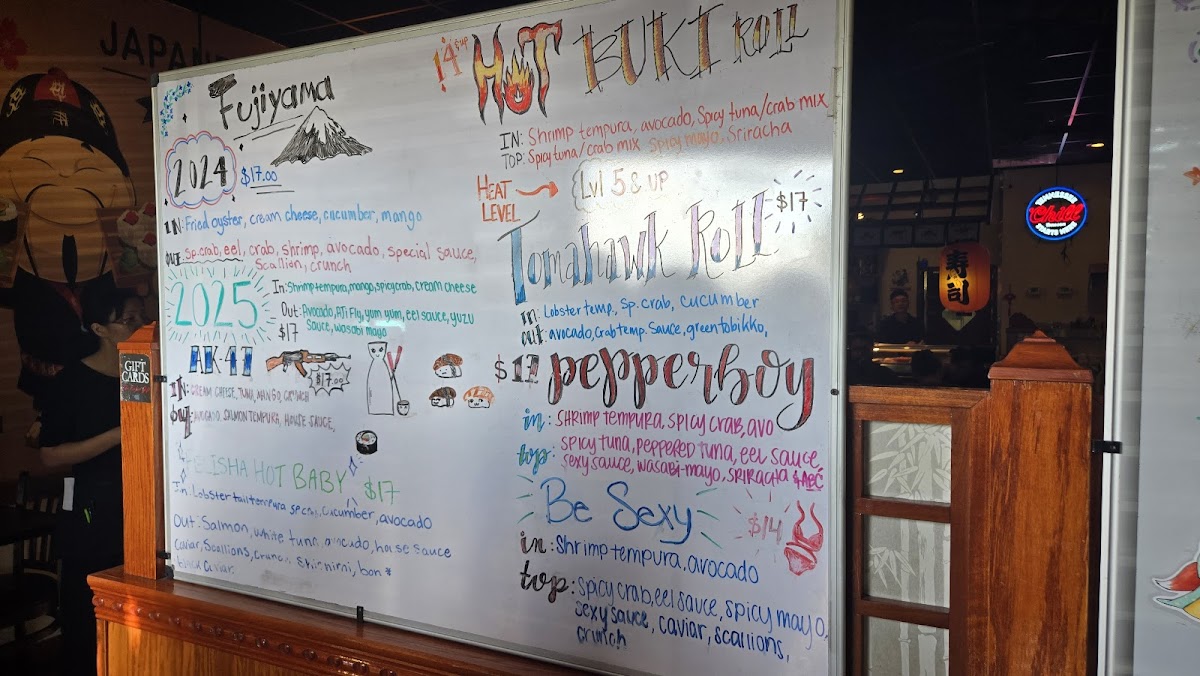 JAPAN
Fujiyama
2024 $17.00
IN: Fried oyster, cream cheese, cucumber, mango
out: sp. crab, eel, crab, shrimp, avocado, special sauce,
scallion, crunch
2025
In: Shrimp tempura, mango, spicy crab, cream cheese
Out: Avocado, AJi Fly, yum yum, eel sauce, yuzu
sauce, wasabi mayo
$17
AK-47
$17.00
IN: CREAM CHEESE, TUNA, MANGO, CRUNCH
out: AVOCADO, SALMON TEMPURA, HOUSE SAUCE,
ELISHA HOT BABY $17
In: Lobster tail tempura sp crab, cucumber, avocado
Out: Salmon, white tuna, avocado, house sauce
caviar, Scallions, crunch
caviar
14$ up
HOT BUKI ROLL
IN: Shrimp tempura, avocado, Spicy tuna/crab mix
TOP: Spicy tuna/crab mix spicy mayo, Sriracha
HEAT LEVEL → Lvl 5 & UP
Tomahawk Roll $17
in: Lobster temp, sp. crab, cucumber
out: avocado, crab temp. Sauce, green tobikko,
$17 pepperboy
in: SHRIMP TEMPURA, SPICY CRAB, AVO
top: SPICY TUNA, PEPPERED TUNA, EEL SAUCE,
SEXY SAUCE, WASABI-MAYO, SRIRACHA
Be Sexy $14
in: Shrimp tempura, avocado
top: spicy crab, eel sauce, spicy mayo,
sexy sauce, caviar, scallions,
crunch
GIFT
CARDS
寿司